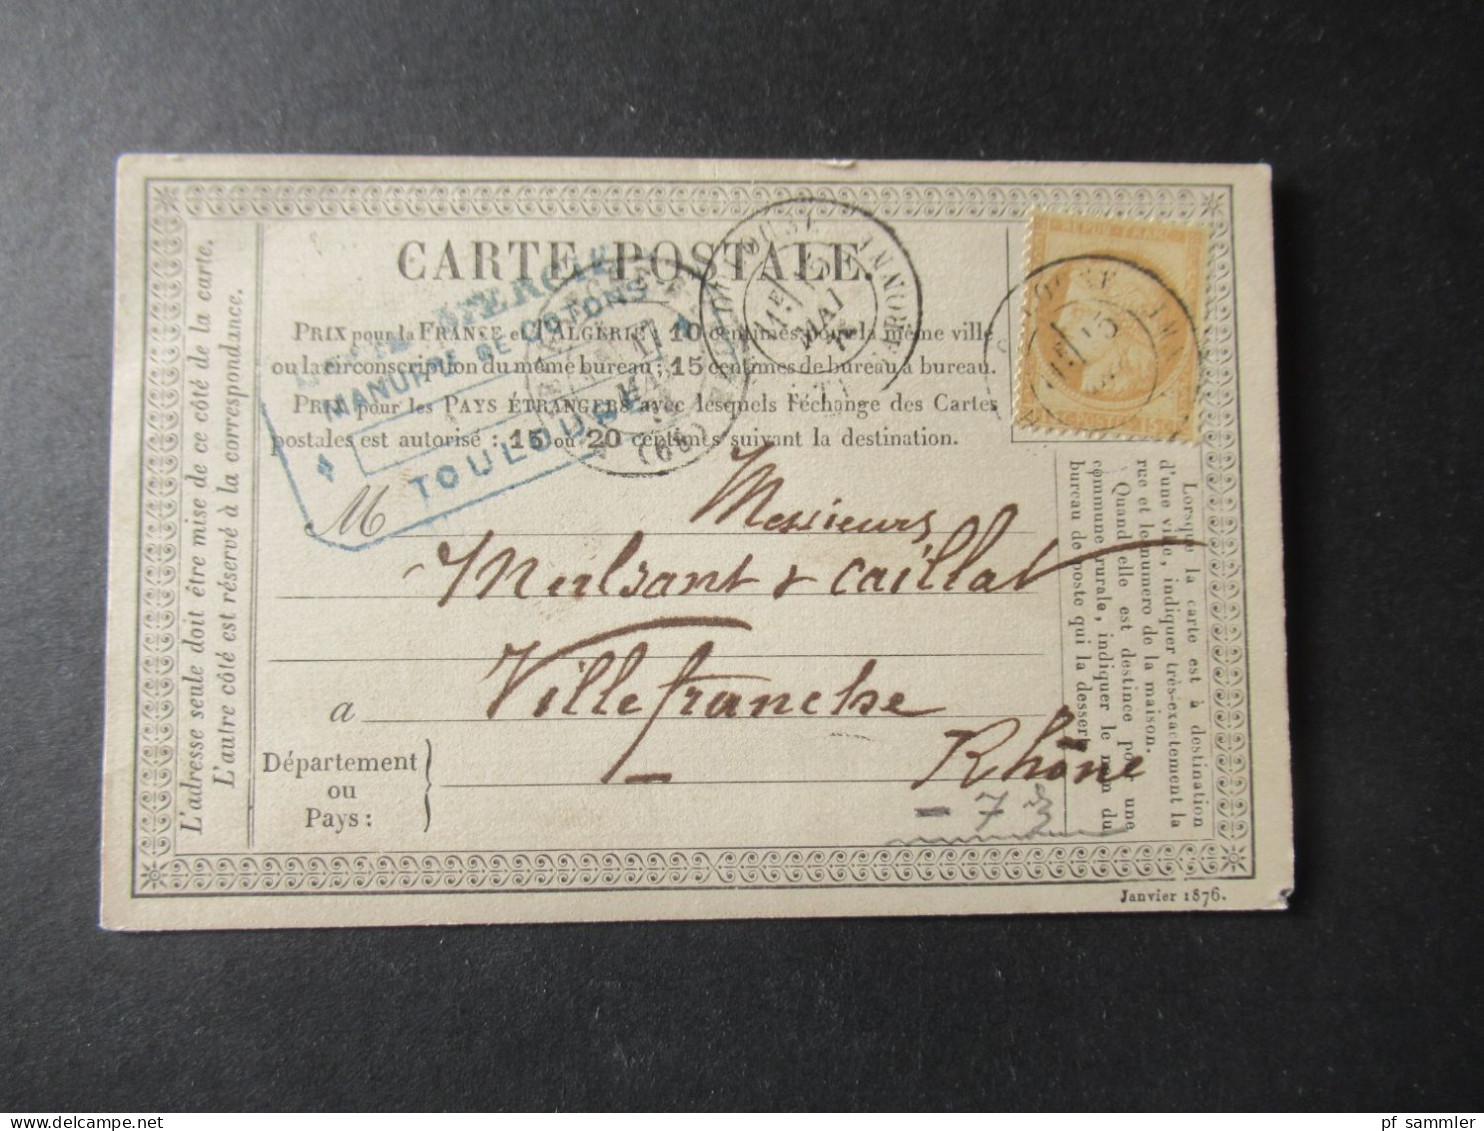 CARTE POSTALE.
PRIX pour la FRANCE et l'ALGÉRIE : 10 centimes pour la même ville
ou la circonscription du même bureau ; 15 centimes de bureau à bureau.
PRIX pour les PAYS ÉTRANGERS avec lesquels l'échange des Cartes
postales est autorisé : 15 ou 20 centimes suivant la destination.
MANUF. RE DE COTONS
TOULOUSE
MAI
(68)
MAI
GARONNE
REPUB. FRANC.
15 C
M
Messieurs
Mulsant & Caillat
a Villefranche
Rhône
Département
ou
Pays :
- 73
L'adresse seule doit être mise de ce côté de la carte.
L'autre côté est réservé à la correspondance.
Lorsque la carte est à destination
d'une ville, indiquer très-exactement la
rue et le numéro de la maison.
Quand elle est destinée pour une
commune rurale, indiquer le nom du
bureau de poste qui la dessert.
Janvier 1876.
pf sammler